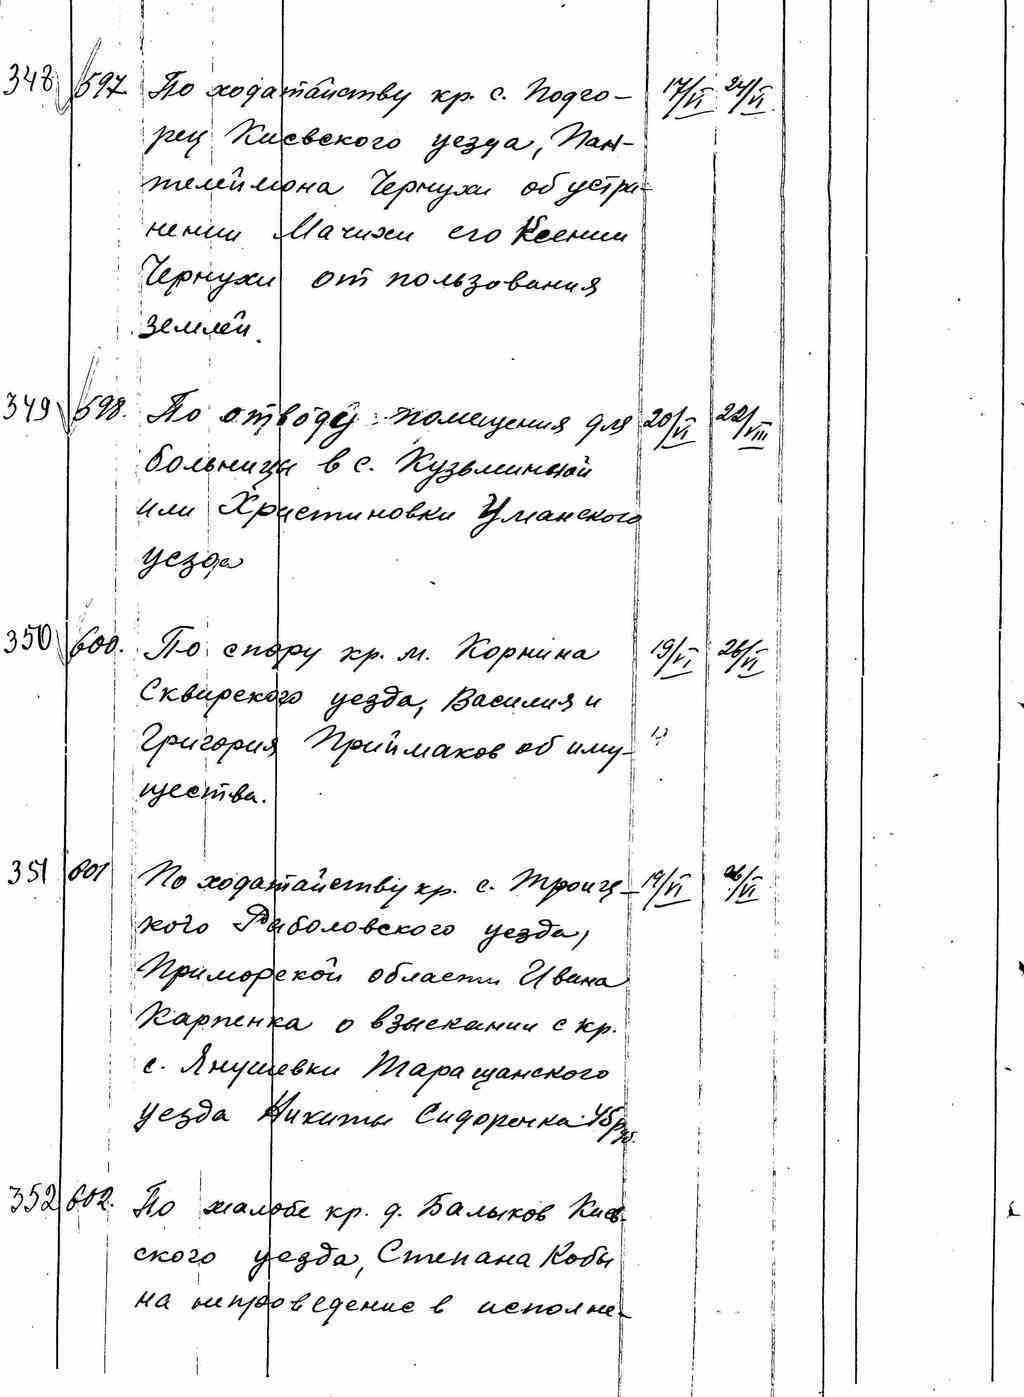 348 597. По ходатайству кр. с. Подго- 17/VI 24/VI
рец Киевского уезда, Пан-
телеймона Чернухи об устра-
нении Мачихи его Ксении
Чернухи от пользования
землей.
349 598. По отводу помещения для 20/VI 22/VIII
больницы в с. Кузьминой
или Христиновки Уманского
уезда
350 600. По спору кр. м. Корнина 19/VI 26/VI
Сквирского уезда, Василия и
Григория Приймаков об иму-
щества.
351 601 По ходатайству кр. с. Троиц- 19/VI 26/VI
кого Раболовского уезда,
Приморской области Ивана
Карпенка о взыскании с кр.
с. Янушевки Таращанского
уезда Никиты Сидоренка 45 руб.
352 602. По жалобе кр. д. Балыков Киев-
ского уезда, Степана Кобы
на непроведение в исполне-